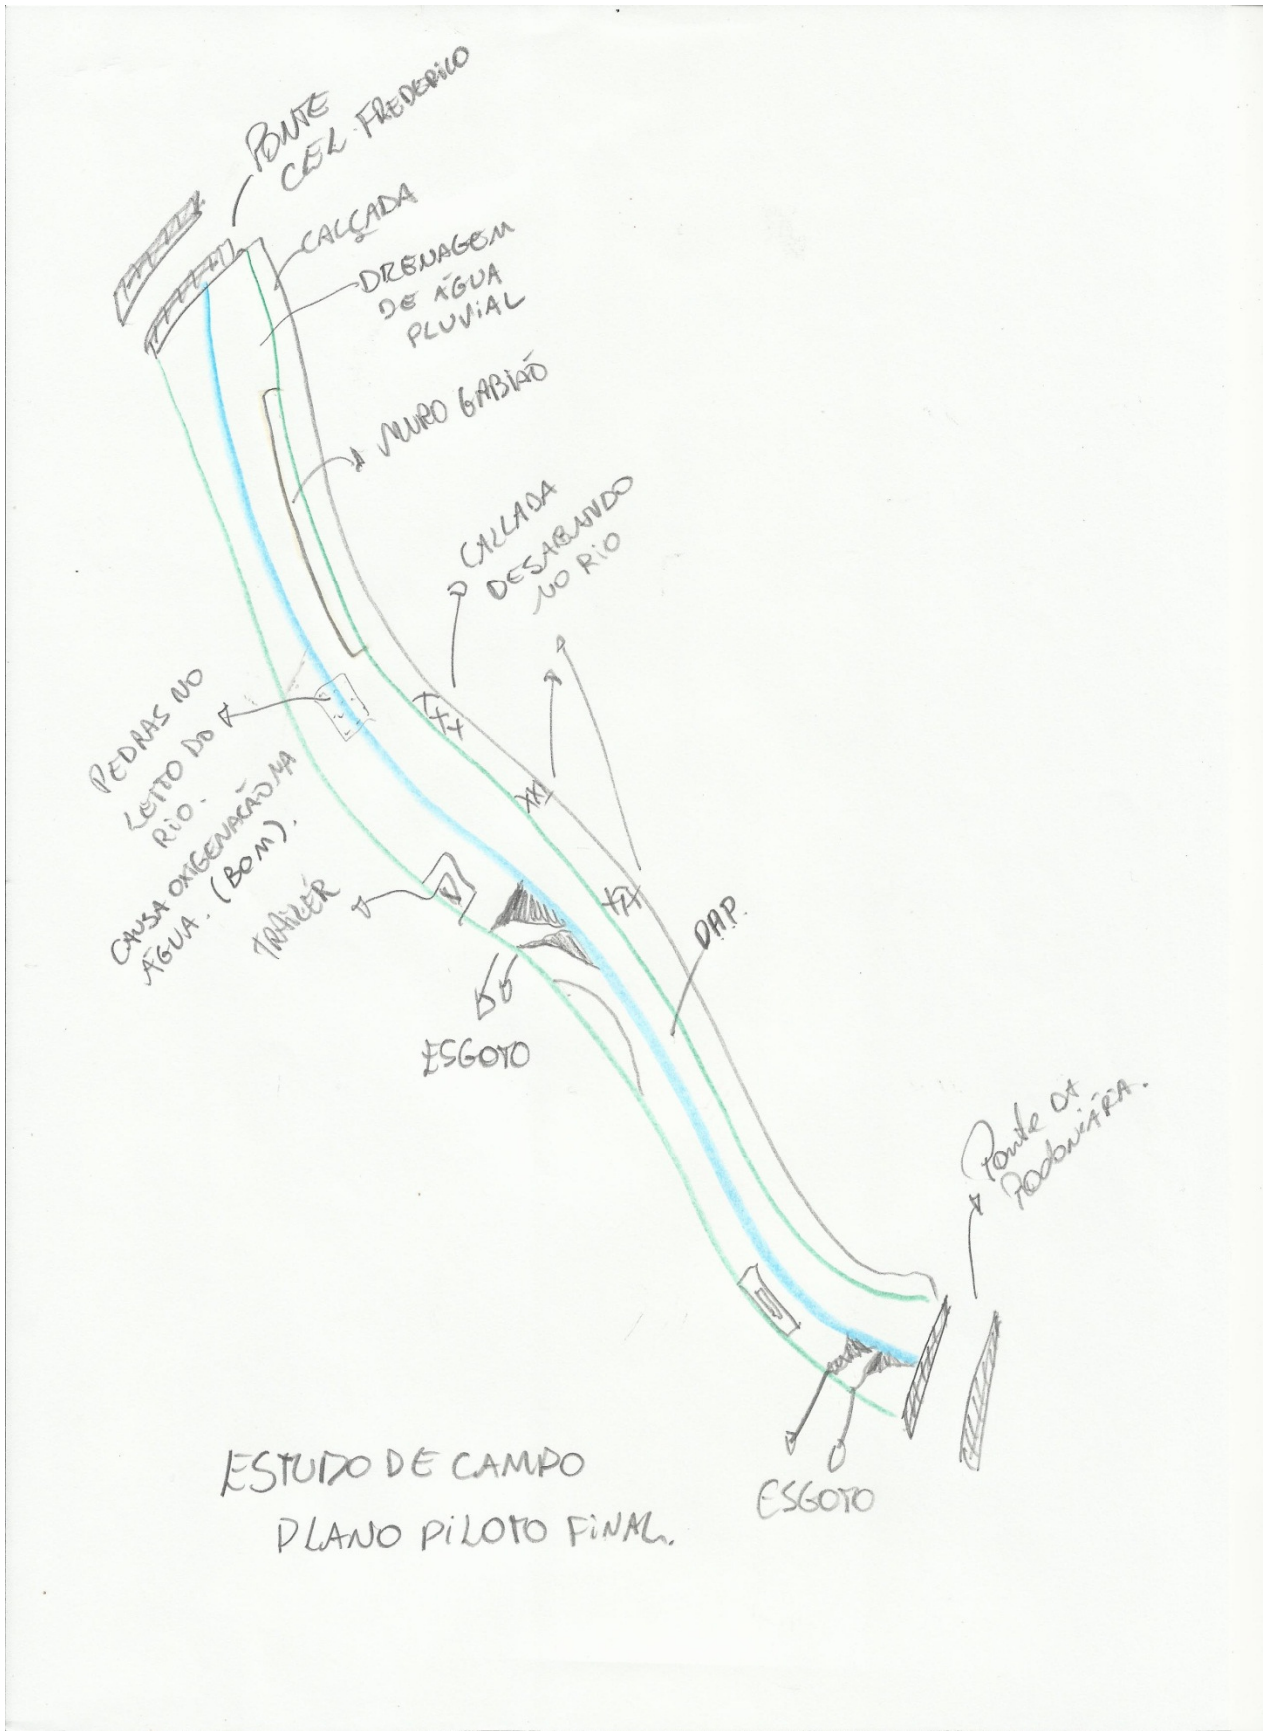 PONTE
CEL FREDERICO
CALÇADA
DRENAGEM
DE ÁGUA
PLUVIAL
MURO GABIÃO
CALÇADA
DESABANDO
NO RIO
PEDRAS NO
LEITO DO
RIO.
CAUSA OXIGENAÇÃO NA
ÁGUA. (BOM).
TRAILER
ESGOTO
D.A.P.
Ponte DA
Rodoviária.
ESGOTO
ESTUDO DE CAMPO
PLANO PILOTO FINAL.